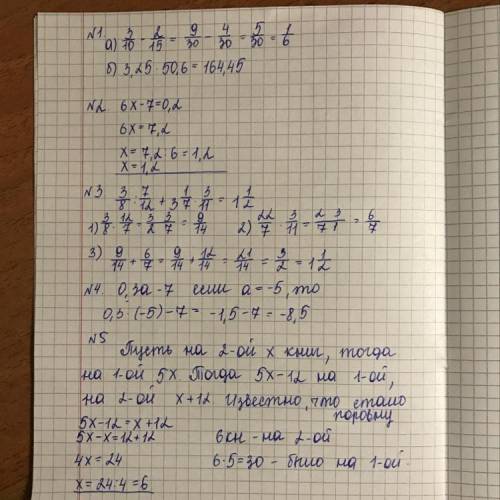 №1.
а) 3/10 - 2/15 = 9/30 - 4/30 = 5/30 = 1/6
б) 3,25 · 50,6 = 164,45
№2 6х-7=0,2
6х=7,2
х=7,2:6=1,2
х=1,2
№3 3/8 : 7/12 + 3 1/7 · 3/11 = 1 1/2
1) 3/8 · 12/7 = 3/2 · 3/7 = 9/14 2) 22/7 · 3/11 = 2/7 · 3/1 = 6/7
3) 9/14 + 6/7 = 9/14 + 12/14 = 21/14 = 3/2 = 1 1/2
№4. 0,3а-7 если а=-5, то
0,3·(-5)-7= -1,5-7=-8,5
№5
Пусть на 2-ой х книг, тогда
на 1-ой 5х. Тогда 5х-12 на 1-ой,
на 2-ой х+12. Известно, что стало
поровну
5х-12=х+12
5х-х=12+12 6кн - на 2-ой
4х=24 6·5=30 - было на 1-ой.
х=24:4=6